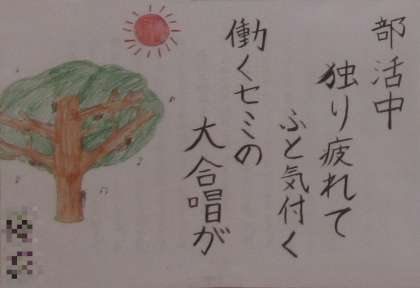 部活中
独り疲れて
ふと気付く
働くセミの
大合唱が